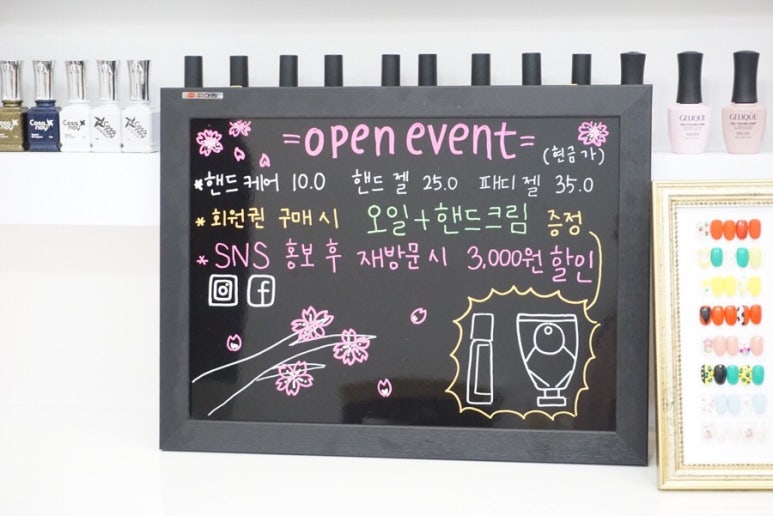 =open event=
(현금가)
*핸드케어 10.0 핸드젤 25.0 패디젤 35.0
*회원권 구매시 오일+핸드크림 증정
*SNS 홍보 후 재방문시 3,000원 할인
GELIQUE
GELIQUE